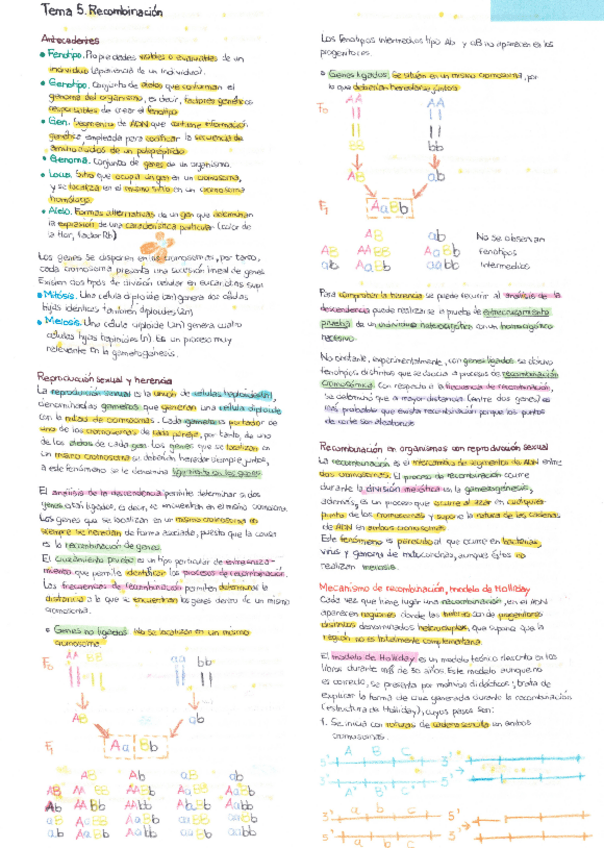 Tema 5. Recombinación
Antecedentes
• Fenotipo. Propiedades visibles o evaluables de un
individuo (apariencia de un individuo).
• Genotipo. Conjunto de alelos que conforman el
genoma del organismo, es decir, factores genéticos
responsables de crear el fenotipo
• Gen. Segmento de ADN que contiene información
genética empleada para codificar la secuencia de
aminoácidos de un polipéptido
• Genoma. Conjunto de genes de un organismo.
• Locus. Sitio que ocupa un gen en un cromosoma,
y se localiza en el mismo sitio en un cromosoma
homólogo
• Alelo. Formas alternativas de un gen que determinan
la expresión de una característica particular (color de
la flor, factor Rh)
Los genes se disponen en los cromosomas, por tanto,
cada cromosoma presenta una sucesión lineal de genes
Existen dos tipos de división celular en eucariotas
• Mitosis. Una célula diploide (2n) genera dos células
hijas idénticas también diploides (2n)
• Meiosis. Una célula diploide (2n) genera cuatro
células hijas haploides (n). Es un proceso muy
relevante en la gametogénesis.
Reproducción sexual y herencia
La reproducción sexual es la unión de células haploides (n),
denominadas gametos que generan una célula diploide
con la mitad de cromosomas. Cada gameto es portador de
uno de los cromosomas de cada pareja, por tanto, de uno
de los alelos de cada gen. Los genes que se localizan en
un mismo cromosoma se deberían heredar siempre juntos,
a este fenómeno se le denomina ligamiento en los genes.
El análisis de la descendencia permite determinar si dos
genes están ligados, es decir, se encuentran en el mismo cromosoma
Los genes que se localizan en un mismo cromosoma no
siempre se heredan de forma asociada, puesto que la causa
es la recombinación de genes.
El cruzamiento prueba es un tipo particular de entrecruza-
miento que permite identificar los procesos de recombinación.
Las frecuencias de recombinación permiten determinar la
distancia a la que se encuentran los genes dentro de un mismo
cromosoma.
• Genes no ligados. No se localizan en un mismo
cromosoma
F0 AA BB aa bb
AB ab
F1 Aa Bb
AB Ab aB ab
AB AA BB AABb AaBB AaBb
Ab AABb AAbb AaBb Aabb
aB AaBB AaBb aaBB aaBb
ab AaBb Aabb aaBb aabb
Los fenotipos intermedios tipo Ab y aB no aparecen en los
progenitores.
• Genes ligados. Se sitúan en un mismo cromosoma, por
lo que deberían heredarse juntos
F0 AA AA
BB bb
AB ab
F1 AaBb
AB ab No se observan
AB AABB AaBb fenotipos
ab AaBb aabb intermedios
Para comprobar la herencia se puede recurrir al análisis de la
descendencia puede realizarse la prueba de entrecruzamiento
prueba de un individuo heterocigótico con un homocigótico
recesivo
No obstante, experimentalmente, con genes ligados se obtuvo
fenotipos distintos que se asocia a procesos de recombinación
cromosómica. Con respecto a la frecuencia de recombinación,
se determinó que a mayor distancia (entre dos genes) es
más probable que exista recombinación porque los puntos
de corte son aleatorios
Recombinación en organismos con reproducción sexual
La recombinación es el intercambio de segmentos de ADN entre
dos cromosomas. El proceso de recombinación ocurre
durante la división meiótica en la gametogénesis,
además, es un proceso que ocurre al azar en cualquier
punto de los cromosomas y supone la rotura de las cadenas
de ADN en ambos cromosomas
Este fenómeno es parecido al que ocurre en bacterias,
virus y genoma de mitocondrias, aunque éstos no
realizan meiosis.
Mecanismo de recombinación, modelo de Holliday
Cada vez que tiene lugar una recombinación, en el ADN
aparecen regiones donde las hebras son de progenitores
distintos denominados heterodúplex, que supone que la
región no es totalmente complementaria.
El modelo de Holliday es un modelo teórico descrito en los
libros durante más de 30 años. Este modelo aunque no
es correcto, se presenta por motivos didácticos; trata de
explicar la forma de cruz generada durante la recombinación
(estructura de Holliday), cuyos pasos son:
1. Se inicia con roturas de cadena sencilla en ambos
cromosomas.
5' A B C 3'
3' A' B' C' 5'
3' a b c 5'
5' a b c 3'